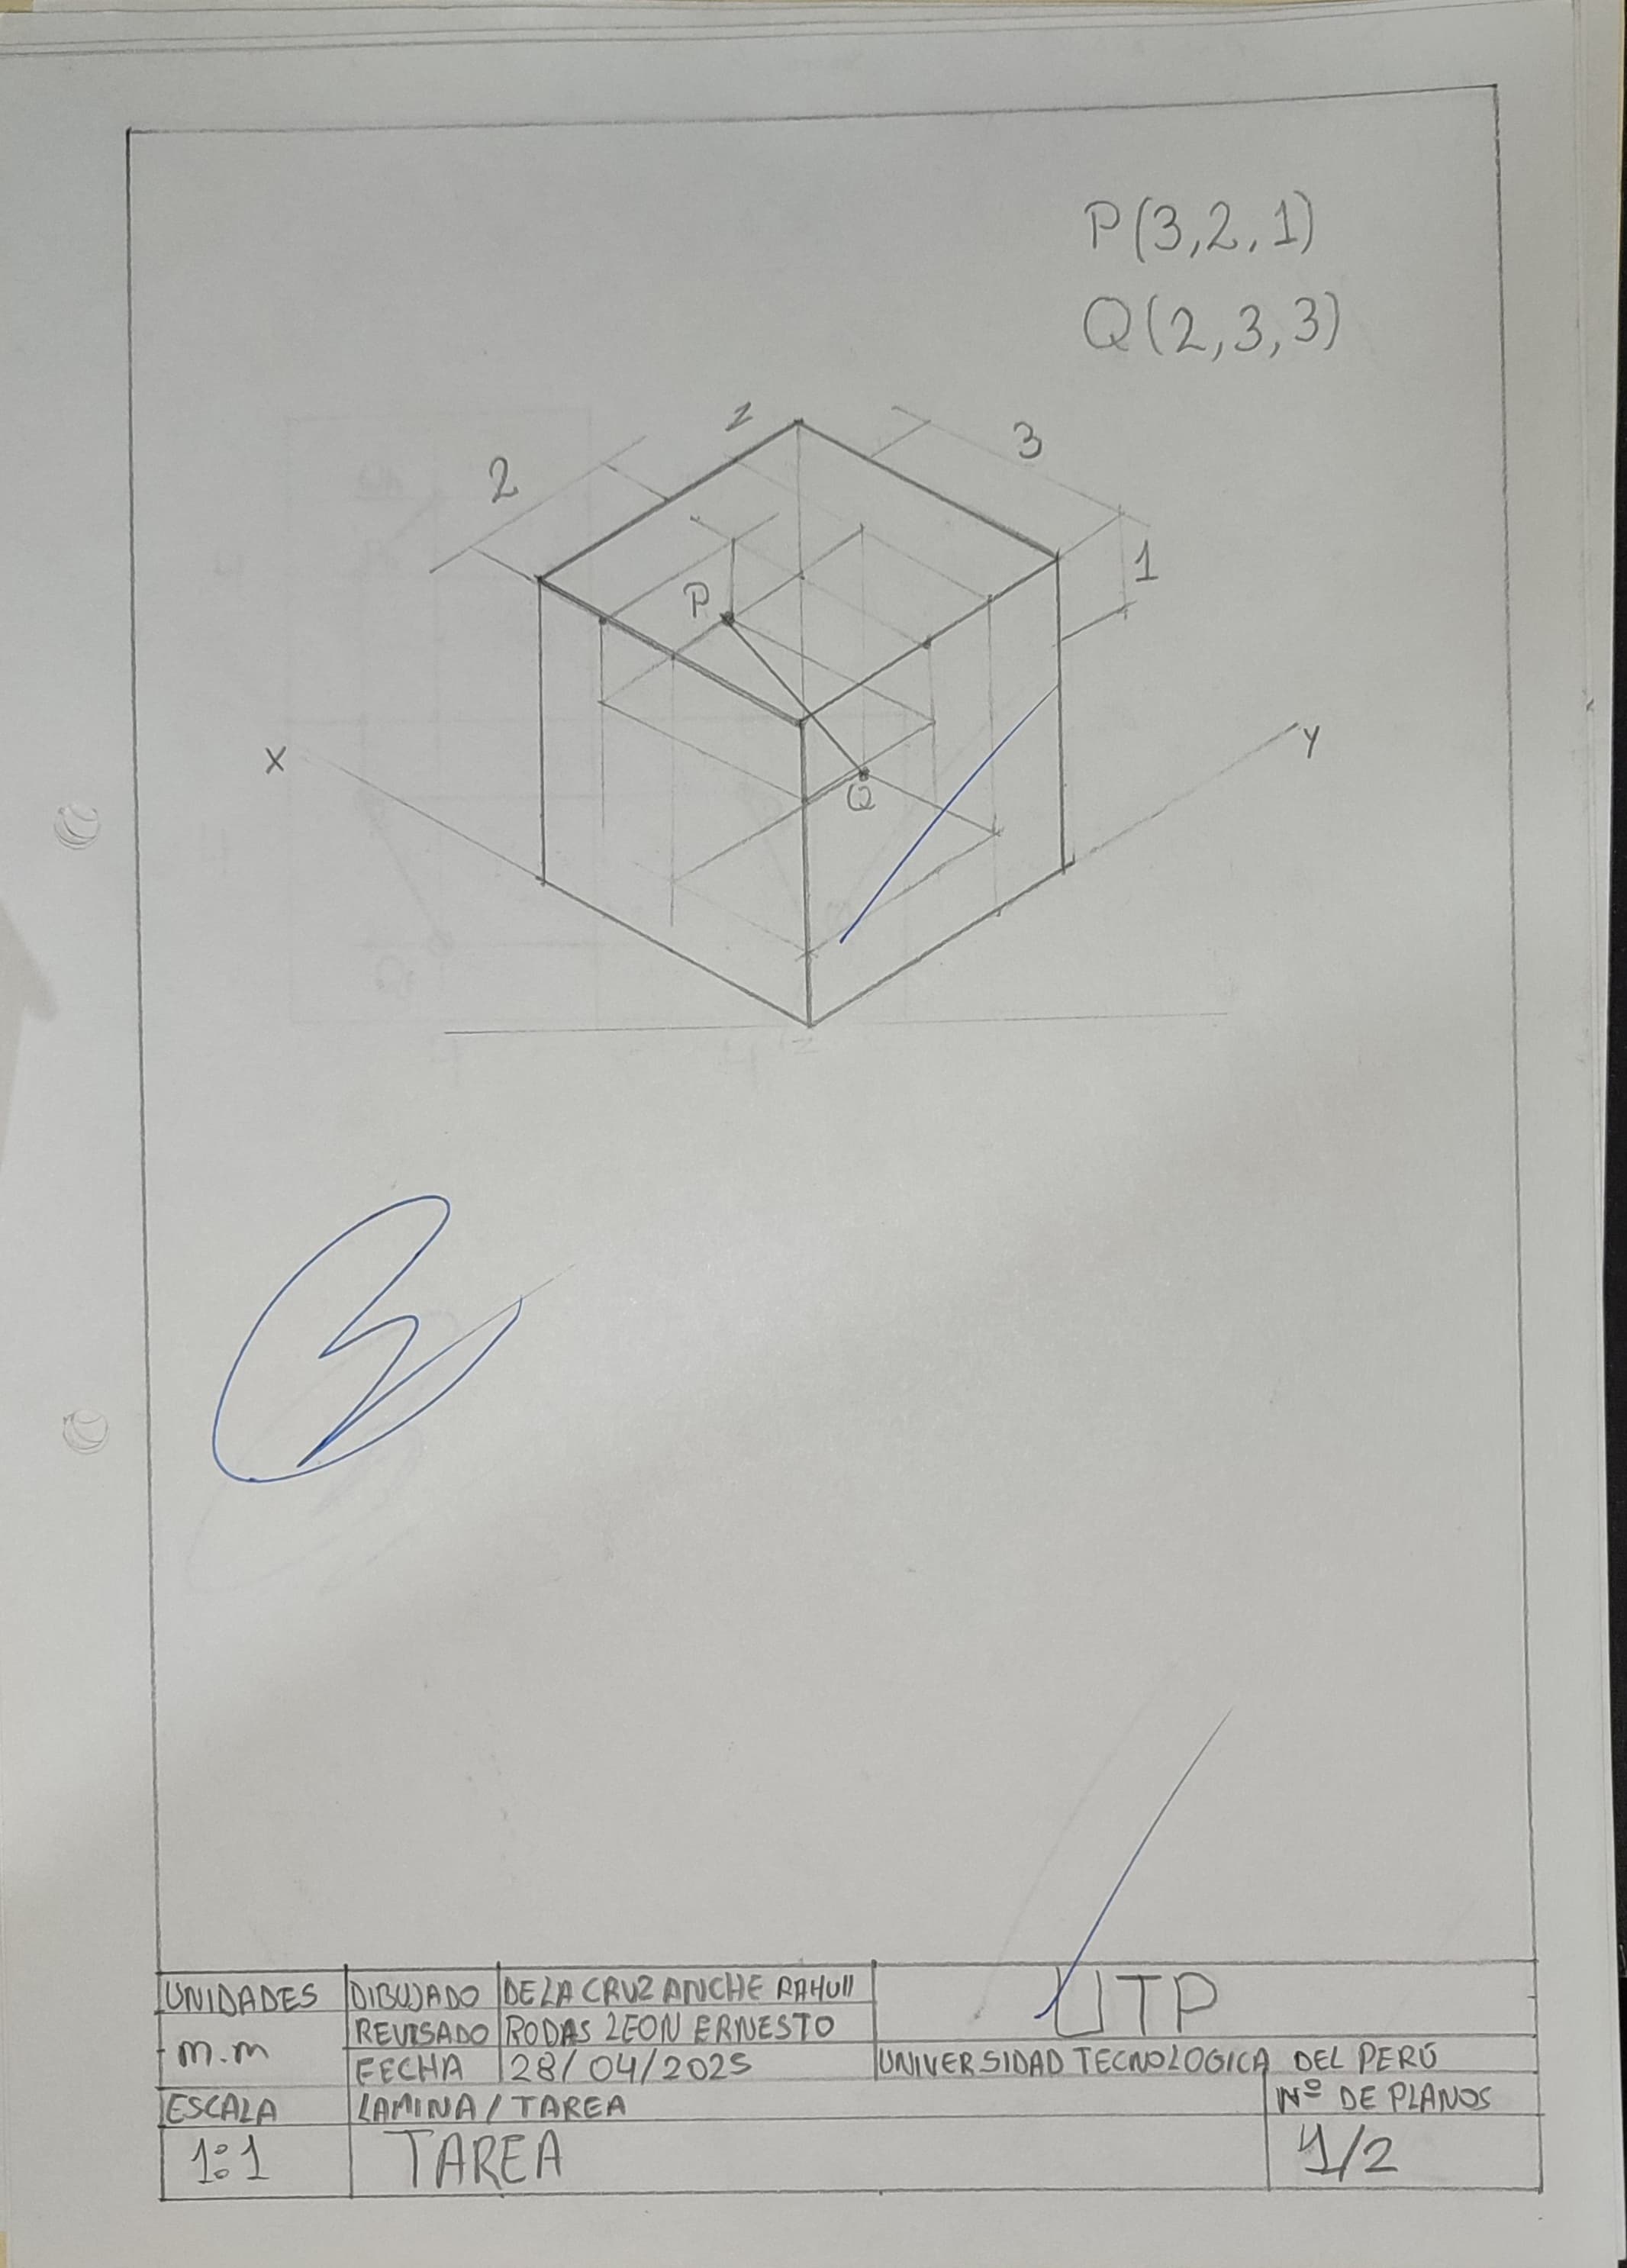 P(3,2,1)
Q(2,3,3)
z
3
2
1
P
X
Y
Q
z
UNIDADES
m.m
DIBUJADO DE LA CRUZ ANCHE RAHUll
REVISADO RODAS LEON ERNESTO
FECHA 28/04/2025
UTP
UNIVERSIDAD TECNOLOGICA DEL PERÚ
ESCALA
1:1
LAMINA / TAREA
TAREA
Nº DE PLANOS
1/2